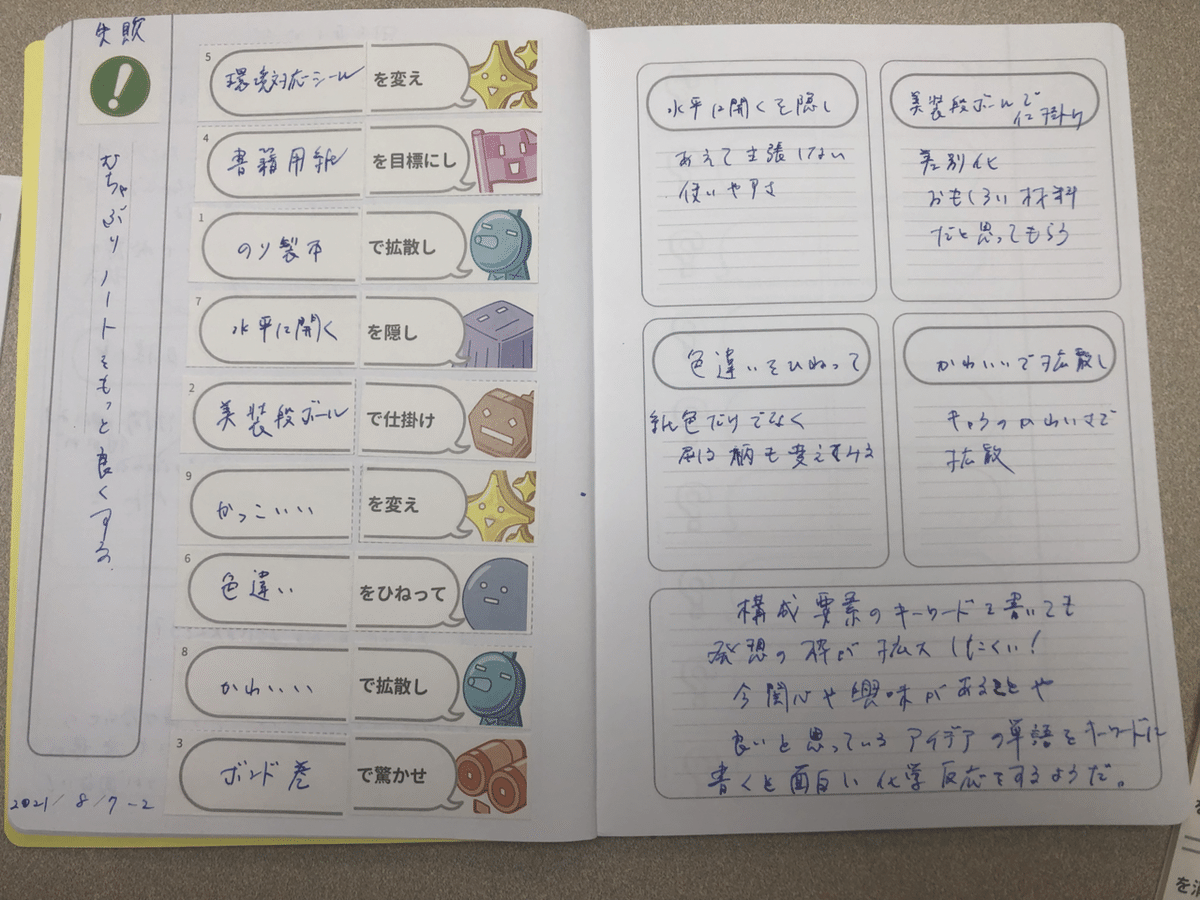 失敗
むちゃぶりノートをもっと良くする。
2021/8/7-2
5 環境対応シール を変え
4 書籍用紙 を目標にし
1 のり製本 で拡散し
7 水平に開く を隠し
2 美装段ボール で仕掛け
9 かっこいい を変え
6 色違い をひねって
8 かわいい で拡散し
3 ボンド巻 で驚かせ
水平に開くを隠し
あえて主張しない
使いやすさ
美装段ボールで
仕掛け
差別化
おもしろい材料
だと思ってもらう
色違いをひねって
紙色だけでなく
柄も変えてみる
かわいいで拡散し
キャラのかわいさで
拡散
構成要素のキーワードを書いても
発想の枠が拡大しにくい!
今関心や興味があることや
良いと思っているアイデアの単語をキーワードに
書くと面白い化学反応をするようだ。